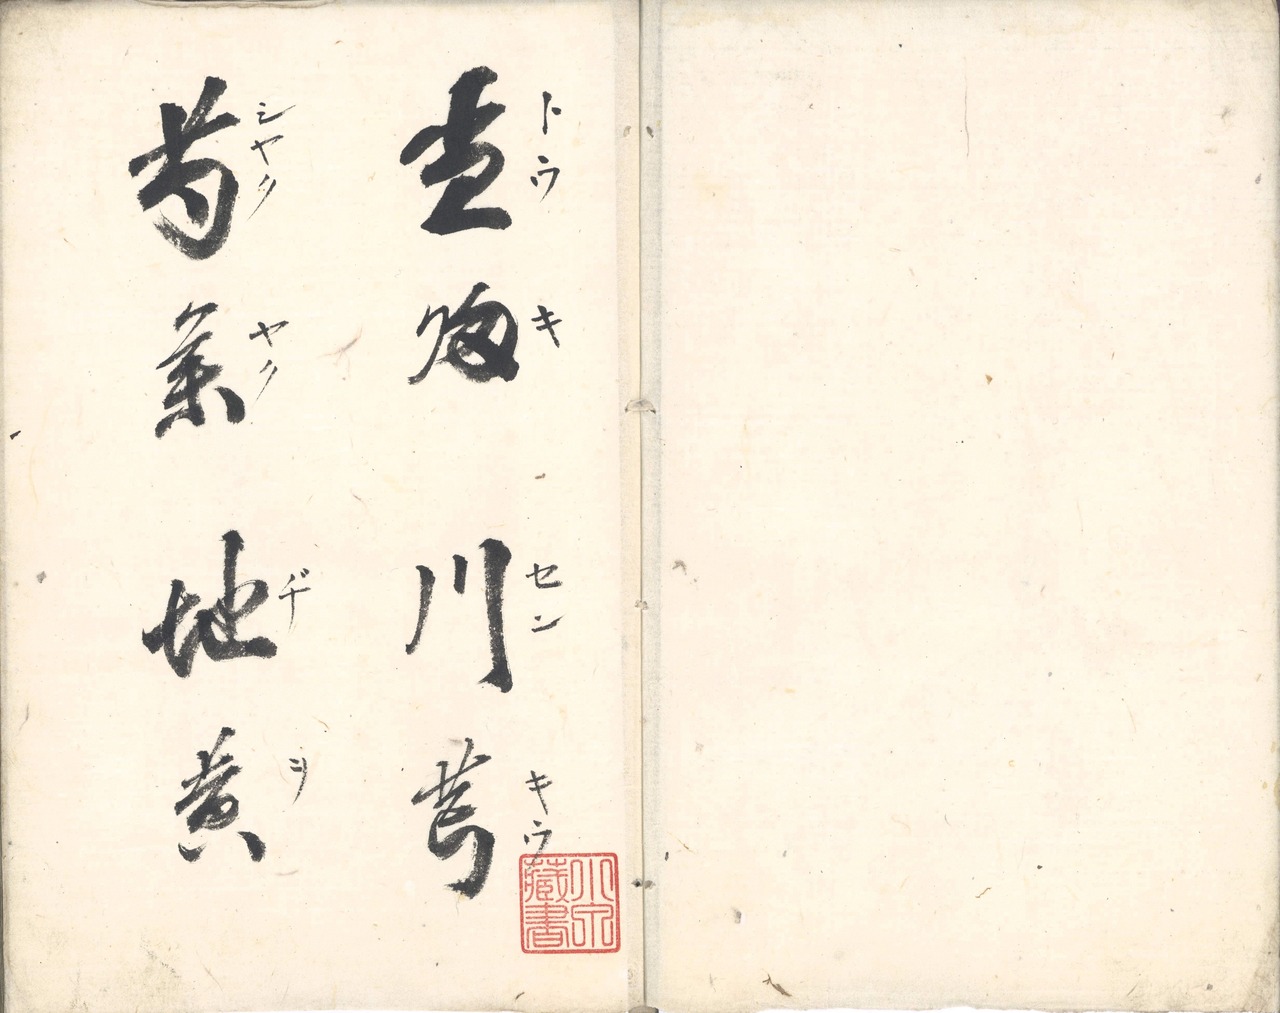 当帰 川芎
トウ キ セン キウ
芍薬 地黄
シヤク ヤク ヂ ヲ
小泉藏書